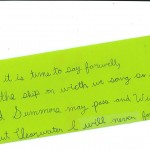 it is time to say farewell,
the ship on which we song so
Summers may pass and
Clearwater I will never